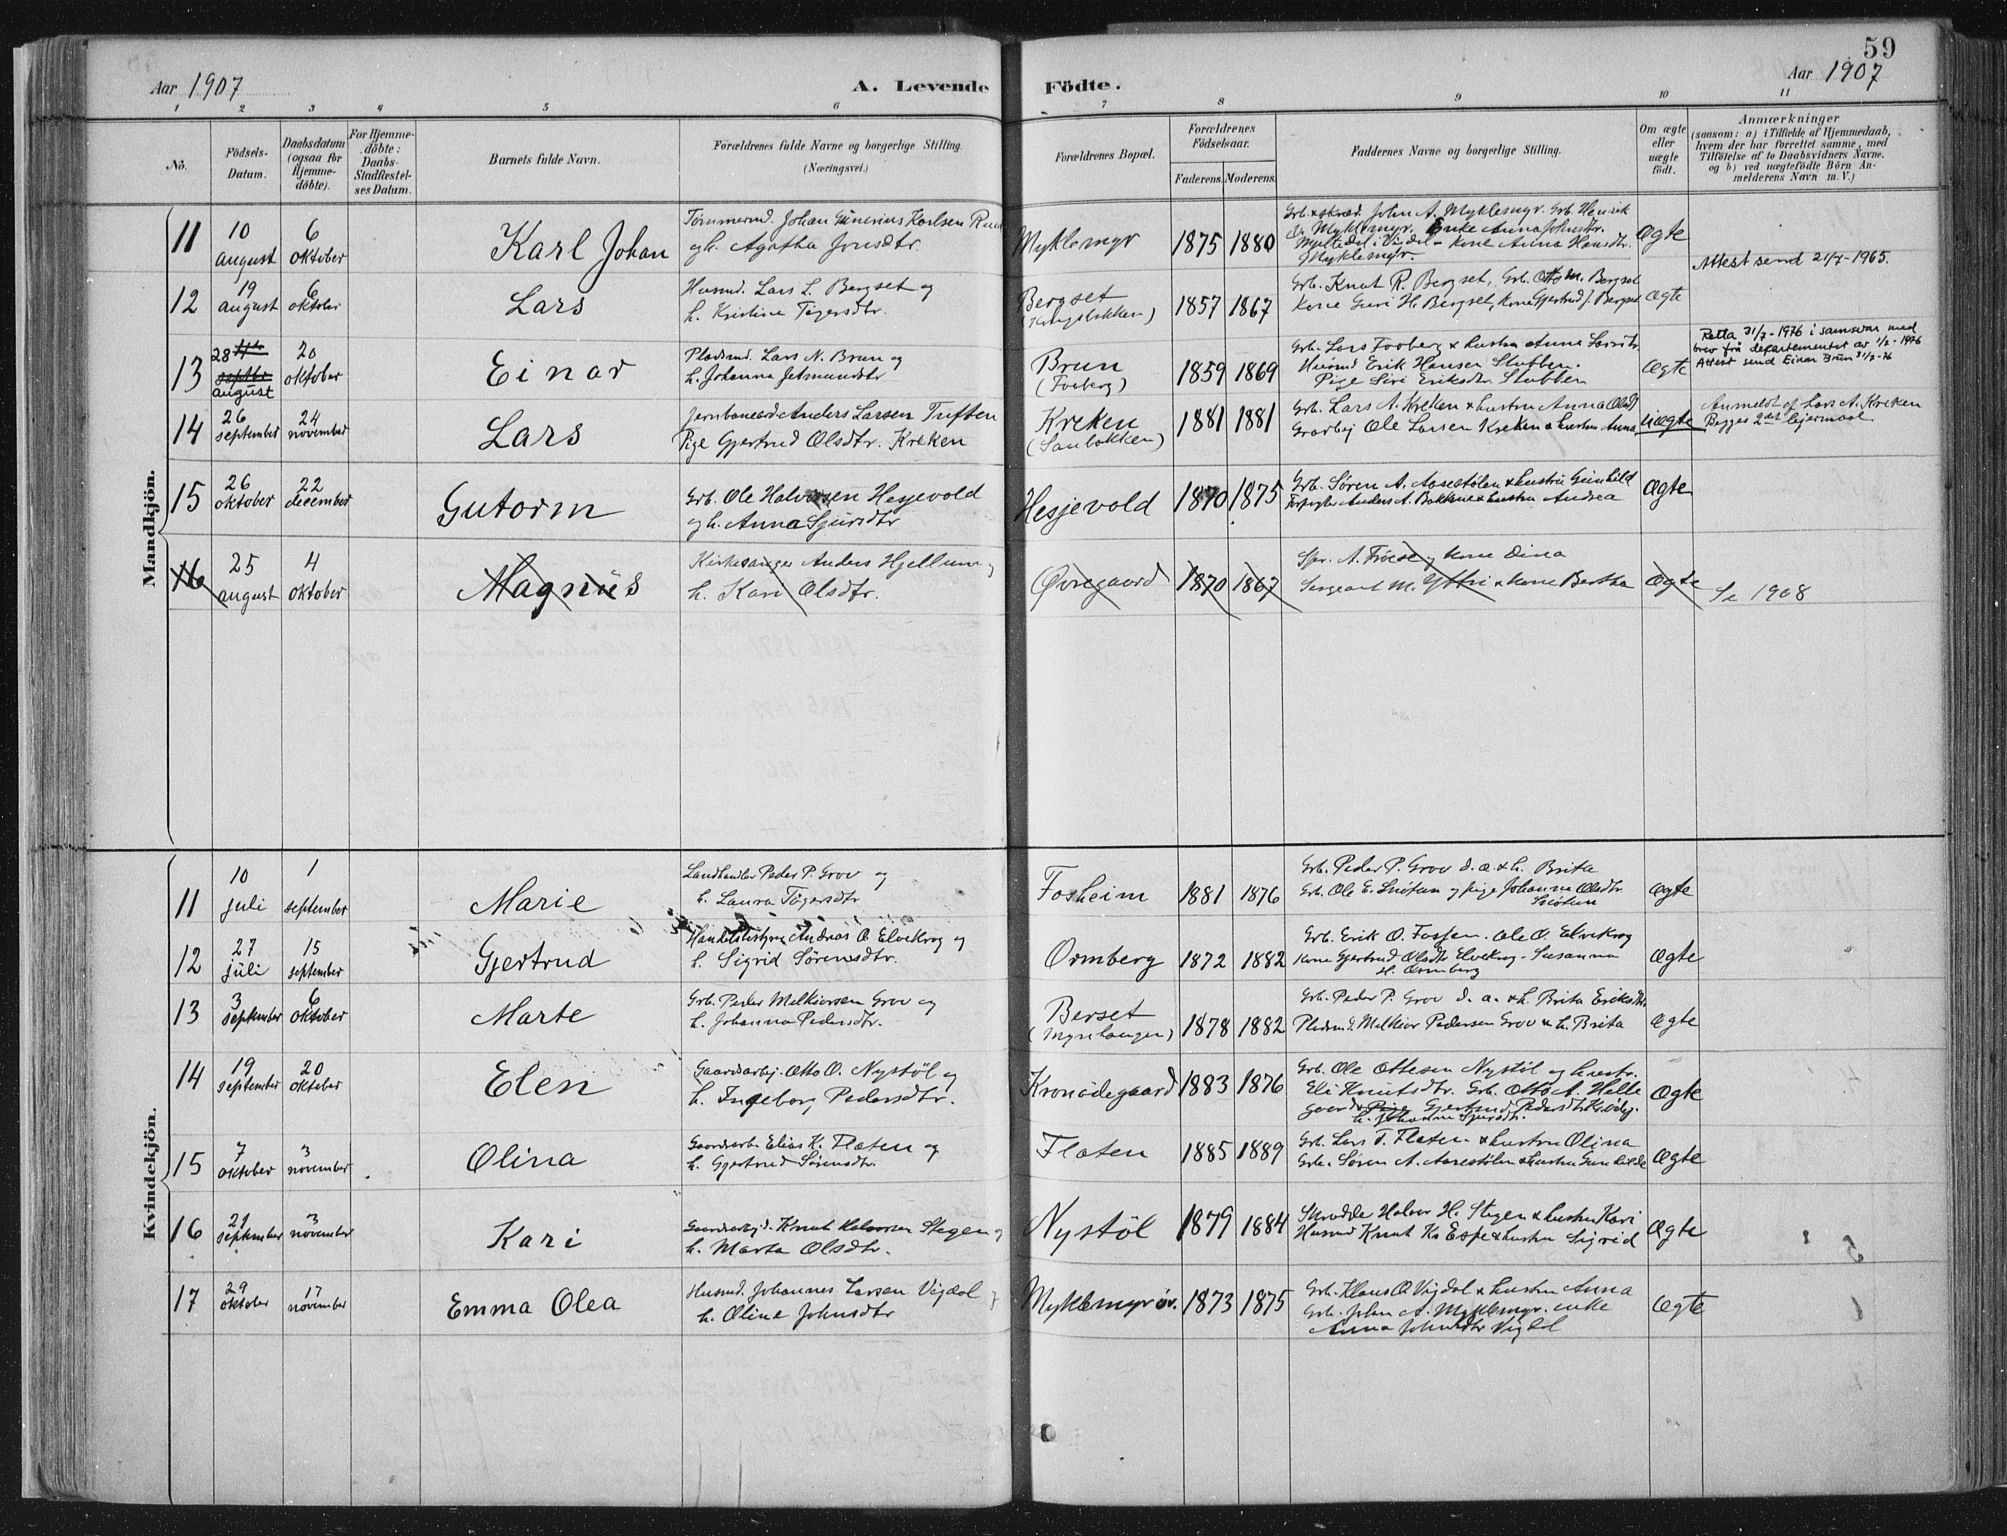 59
Aar 1907 A. Levende Födte. Aar 1907
1 2 3 4 5 6 7 8 9 10 11
No.
Födsels-
Datum.
Daabsdatum
(ogsaa for
Hjemme-
döbte).
For Hjemme-
döbte:
Daabs-
Stadfæstel-
ses Datum.
Barnets fulde Navn.
Forældrenes fulde Navne og borgerlige Stilling.
(Næringsvei.)
Forældrenes Bopæl.
Forældrenes
Födselsaar.
Faderens. Moderens.
Faddernes Navne og borgerlige Stilling.
Om ægte
eller
uægte
födt.
Anmærkninger
(saasom: a) i Tilfælde af Hjemmedaab,
hvem der har forrettet samme, med
Tilföielse af to Daabsvidners Navne.
og b) ved uægtefödte Börn An-
melderens Navn m. V.)
Mandkjön.
11
10
august
6
oktober
Karl Johan
Tømmermd. Johan Gunerius Karlsen Rud
og h. Agatha Jonsdtr.
Myklemyr
1875 1880
Grb. & skræd. John A. Myklemyr. Grb. Henrik
O. Myklemyr. Enke Anna Johnsdtr.
Myttedel i Vigdel - Kone Anna Hansdtr.
Myklemyr.
Ægte
Attest send 21/7-1965.
12
19
august
6
oktober
Lars
Husmd. Lars L. Bergset og
h. Kristine Tøgersdtr.
Bergset
1857 1867
Grb. Knut R. Bergset, Grb. Otto M. Bergset
Kone Guri H. Bergset, Kone Gjertrud J. Bergset
Ægte
13
28
septbr
august
20
oktober
Einar
Pladsmd. Lars N. Brun og
h. Johanna Jetmundsdtr
Brun
(Foeberg)
1859 1869
Grb. Lars Foeberg & hustru Anna Larsdtr
Husmd Erik Hansen Stubben.
Pige Siri Eriksdtr. Stubben
Ægte
Retta 31/3-1976 i samsvar med
brev frå departementet av 1/3-1976
Attest send Einar Brun 31/3-76
14
26
september
24
november
Lars
Jernbanearb Anders Larsen Tuften
Pige Gjertrud Olsdtr. Kreken
Kreken
1881 1881
Grb. Lars A. Kreken & hustru Anna Olsdt
Graarbej Ole Larsen Kreken & hustru Anna
Uægte
Anmeldt af Lars A. Kreken
Begges 2det lejermaal.
15
26
oktober
22
december
Gutorm
Grb. Ole Halvorsen Hesjevold
og h. Anna Sjursdtr
Hesjevold
1870 1875
Grb. Søren A. Aasetølen & hustru Gunhild
Forpagter Anders A. Bakkene & hustru Andrea
Ægte
16
25
august
4
oktober
Magnus
Kirkesanger Anders Hjellum og
h. Kari Olsdtr.
Øvregaard
1870 1867
Spr. A. Frøise og kone Dina
Sergeant M. Yttri & kone Bertha
Ægte
Se 1908
Kvindekjön.
11
10
juli
1
september
Marie
Landhandler Peder P. Grov og
h. Laura Tøgersdtr
Fosheim
1881 1876
Grb. Peder P. Grov d. a. & h. Brita
Grb. Ole E. Snøtun og pige Johanna Olsdtr
Snøtun
Ægte
12
27
juli
15
september
Gjertrud
Handelsbestyrer Andreas O. Elvekrog og
h. Sigrid Sørensdtr.
Ormberg
1872 1882
Grb. Erik O. Fossen. Ole O. Elvekrog
Kone Gjertrud Olsdtr Elvekrog - Susanna
H. Ormberg
Ægte
13
3
september
6
oktober
Marte
Grb. Peder Melkiorsen Grov og
h. Johanna Pedersdtr.
Berset
(Myrelangen)
1878 1882
Grb. Peder P. Grov d. a. & h. Brita Eriksdtr.
Pladsmd. Melkior Pedersen Grov & h. Brita
Ægte
14
19
september
20
oktober
Elen
Gaardsarbej. Otto O. Nystøl og
h. Ingeborg Pedersdtr.
Kronedegaard
1883 1876
Grb. Ole Ottesen Nystøl og hustr.
Eli Knutsdtr. Grb. Otto A. Helle
h. Johanne Sjursdtr.
Ægte
15
7
oktober
3
november
Olina
Gaardsarb. Elias K. Flaten og
h. Gjertrud Sørensdtr.
Flaten
1885 1889
Grb. Lars T. Flaten & hustru Olina
Grb. Søren A. Aasetølen & hustru Gunhilde
Ægte
16
21
september
3
november
Kari
Gaardsarbejd. Knut Halvorsen Stegen og
h. Marta Olsdtr.
Nystøl
1879 1884
Skrædder Halvor H. Stegen & hustru Kari
Husmd Knut Ks Espe & hustru Sigrid
Ægte
17
29
oktober
17
november
Emma Olea
Husmd. Johannes Larsen Vigdal og
h. Oline Johnsdtr
Myklemyr øv.
1873 1875
Grb. Klaus O. Vigdal & hustru Anna
Grb. John A. Myklemyr. enke
Anna Johnsdtr Vigdal
Ægte